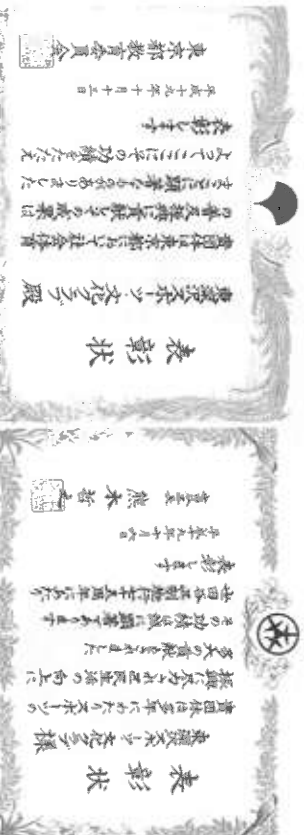 表彰状
東深沢スポーツ文化クラブ殿
貴団体は東京都において社会体育
の普及振興に貢献しその成果は
まことに顕著なものがありました
よってここにその功績をたたえ
表彰します
平成十九年十月十三日
東京都教育委員会
表彰状
東深沢スポーツ文化クラブ様
貴団体は多年にわたりスポーツの
振興に尽力され区民生活の向上に
多大の貢献をされました
その功績は誠に顕著であります
世田谷区制施行七十五周年にあたり
表彰します
平成十九年十月六日
熊本哲之